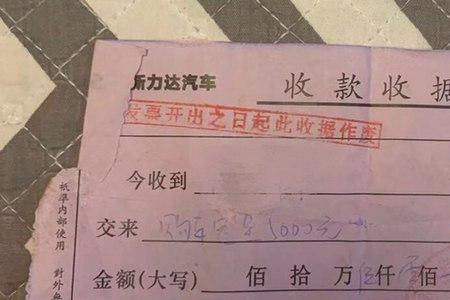 新力达汽车 收款收据
发票开出之日起此收据作废
今收到
交来 购车定金5000元
金额(大写) 佰拾万伍仟零佰
祇準内部使用 對外無